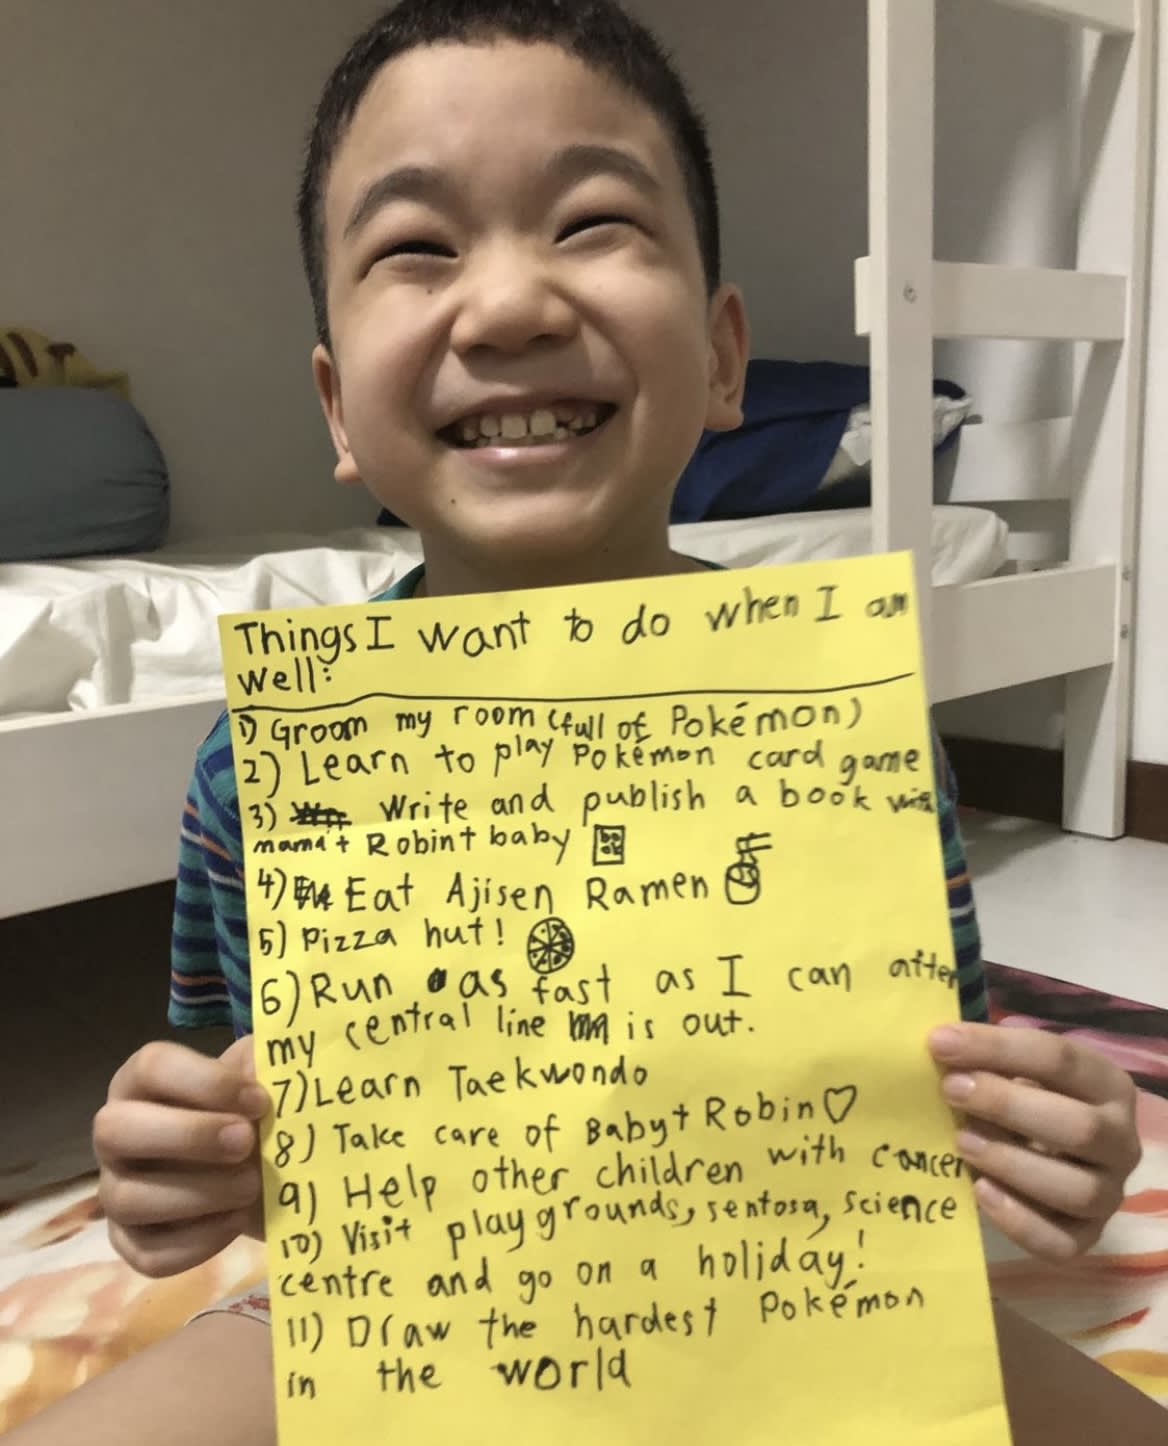 Things I want to do when I am
well:
1) Groom my room (full of Pokémon)
2) Learn to play Pokémon card game
3) Write and publish a book with
mama + Robin + baby
4) Eat Ajisen Ramen
5) Pizza hut!
6) Run as fast as I can after
my central line is out.
7) Learn Taekwondo
8) Take care of Baby + Robin♡
9) Help other children with cancer
10) Visit playgrounds, sentosa, science
centre and go on a holiday!
11) Draw the hardest Pokémon
in the world